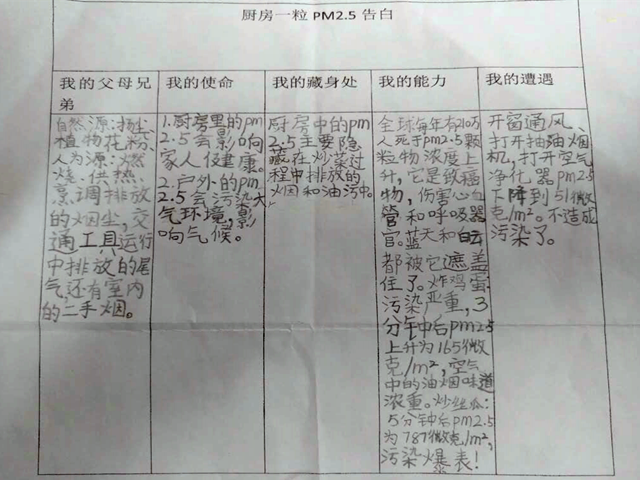 厨房一粒 PM2.5 告白
我的父母兄
弟
自然源:扬尘
植物花粉
人为源:燃
烧、供热、
烹调排放
的烟尘,交
通工具运行
中排放的尾
气,还有室内
的二手烟。
我的使命
1.厨房里的pm
2.5会影响
家人健康。
2.户外的pm
2.5会污染大
气环境,影
响气候。
我的藏身处
厨房中的pm
2.5主要隐
藏在炒菜过
程中排放的
烟和油污中。
我的能力
全球每年有210万
人死于pm2.5颗
粒物浓度上
升,它是致癌
物,伤害心血
管和呼吸器
官。蓝天和白云
都被它遮盖
住了。炸鸡蛋
污染严重,3
分钟中后pm2.5
上升为165微
克/m²,空气
中的油烟味道
浓重。炒丝瓜:
5分钟中后pm2.5
为787微克/m²,
污染爆表!
我的遭遇
开窗通风、
打开抽油烟
机,打开空气
净化器pm2.5
下降到51微
克/m²。不造成
污染了。